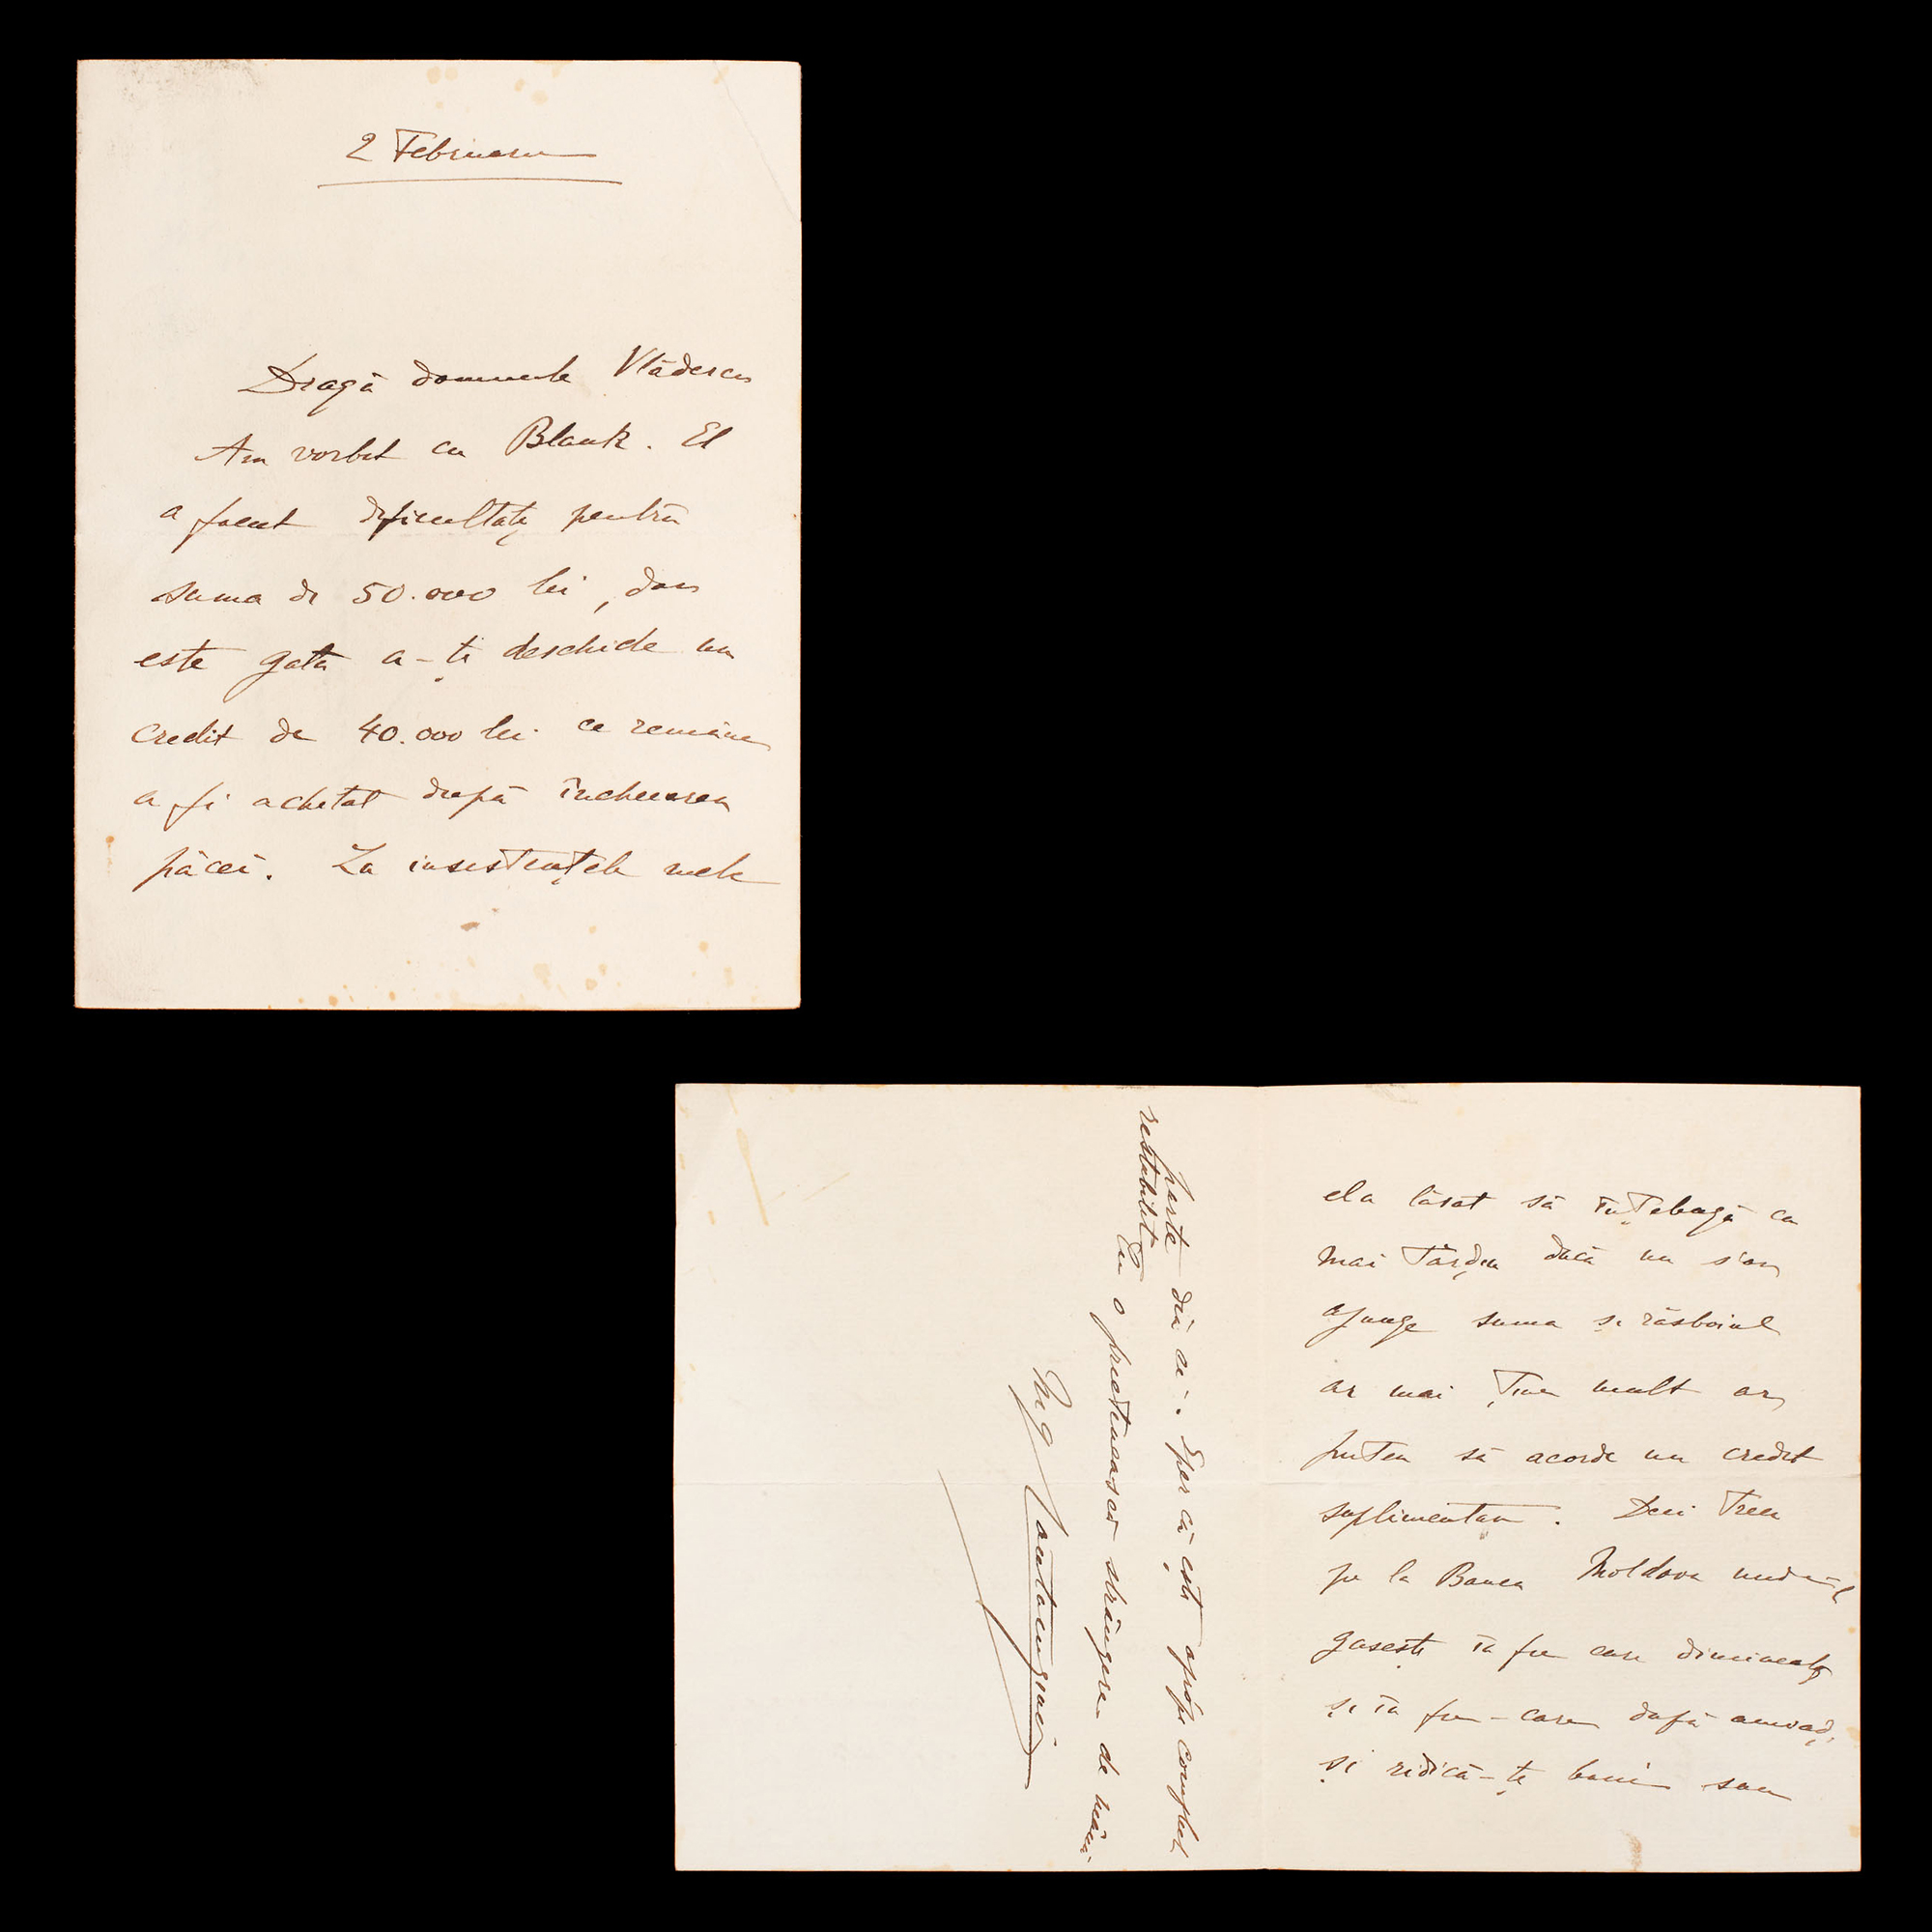 2 Februarie
Dragă domnule Vlădescu
Am vorbit cu Blank. El
a facut dificultăți pentru
suma de 50.000 lei, dar
este gata a-ți deschide un
credit de 40.000 lei ce remâne
a fi achitat după încheearea
păcei. La insistențele mele
el a lăsat să înțeleagă ca
mai târḑiu dacă nu s'ar
ajunge suma și răsboiul
ar mai ține mult ar
putea să acorde un credit
suplimentar. Deci treci
pe la Banca Moldova unde-l
gasești în fie care dimineață
și în fie-care după amiaḑi
și ridică-ți banii sau
parte din ei. Sper că ești aprópe complect
restabilit
Cu o prietenească strângere de mână
Mig Cantacuzino